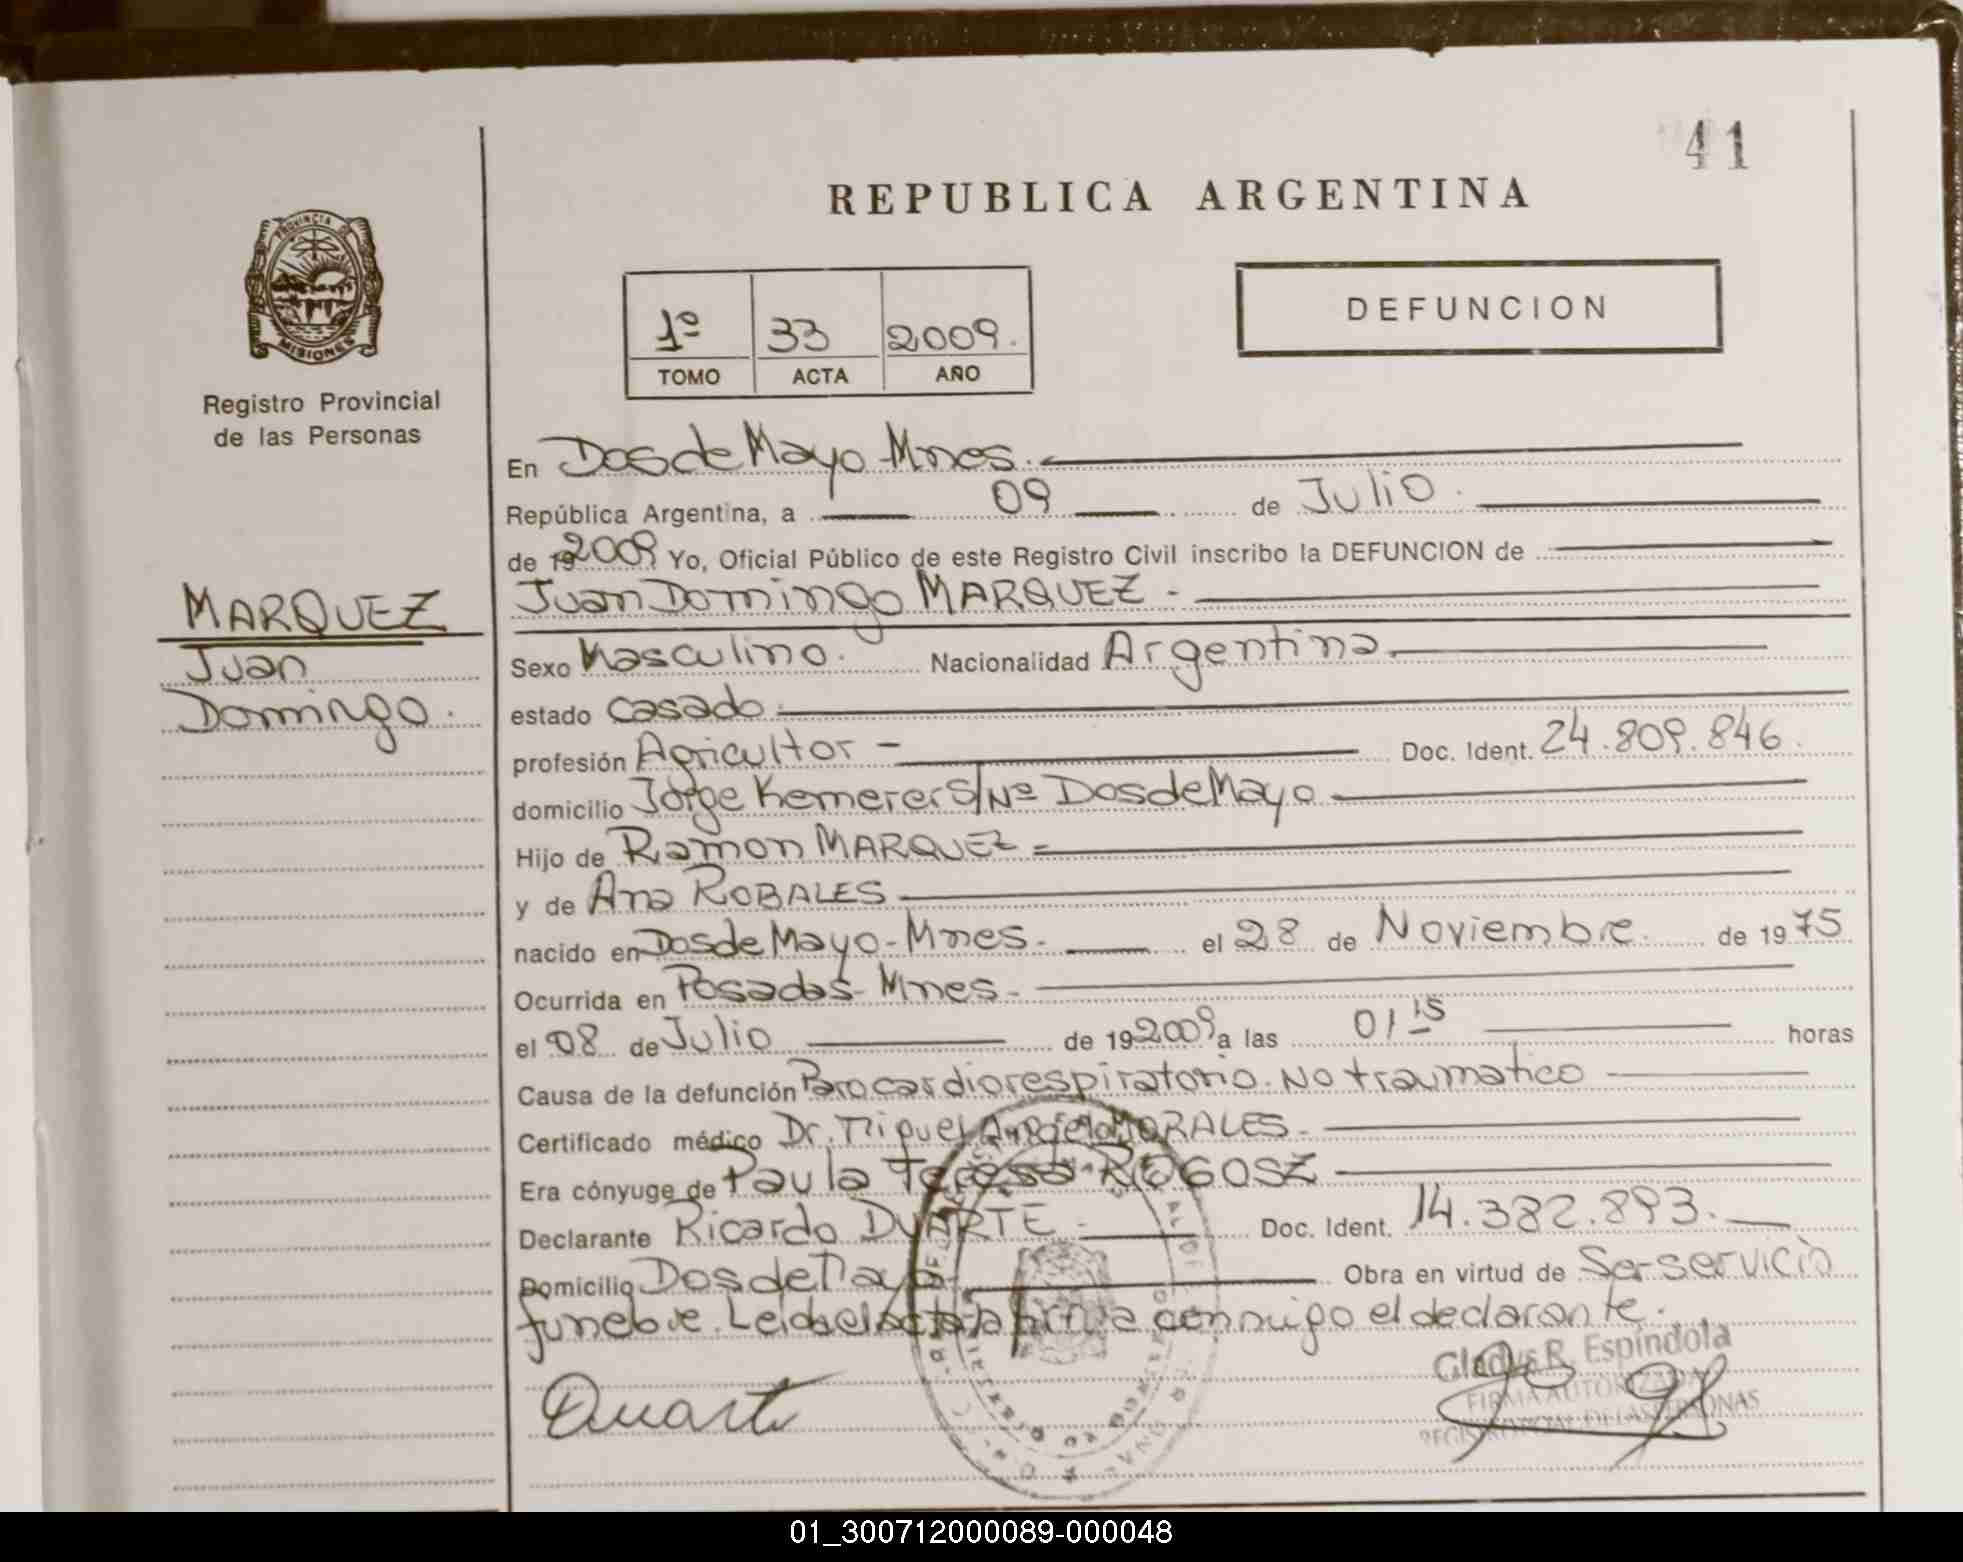 41
REPUBLICA ARGENTINA
PROVINCIA DE
MISIONES
Registro Provincial
de las Personas
1º 33 2009.
TOMO ACTA AÑO
DEFUNCION
En Dos de Mayo Mnes.
República Argentina, a 09 de Julio.
de 19 2009 Yo, Oficial Público de este Registro Civil inscribo la DEFUNCION de
MARQUEZ
Juan
Domingo.
Juan Domingo MARQUEZ -
Sexo Masculino. Nacionalidad Argentina.
estado casado.
profesión Agricultor - Doc. Ident. 24.809.846.
domicilio Jorge Kemerer S/Nº Dos de Mayo
Hijo de Ramon MARQUEZ -
y de Ana ROBALES
nacido en Dos de Mayo - Mnes. el 28 de Noviembre. de 1975
Ocurrida en Posadas - Mnes -
el 08 de Julio de 19 2009 a las 01 15 horas
Causa de la defunción Paro cardiorespiratorio. No traumatico
Certificado médico Dr. Miguel Angel MORALES -
Era cónyuge de Paula Teresa ROGOSZ
Declarante Ricardo DUARTE - Doc. Ident. 14.382.893.
Domicilio Dos de Mayo Obra en virtud de Ser servicio
funebre. Leida el acta la firma conmigo el declarante.
Gladys R. Espíndola
FIRMA AUTORIZADA
REGISTRO PCIAL. DE LAS PERSONAS
Duarte
01_300712000089-000048